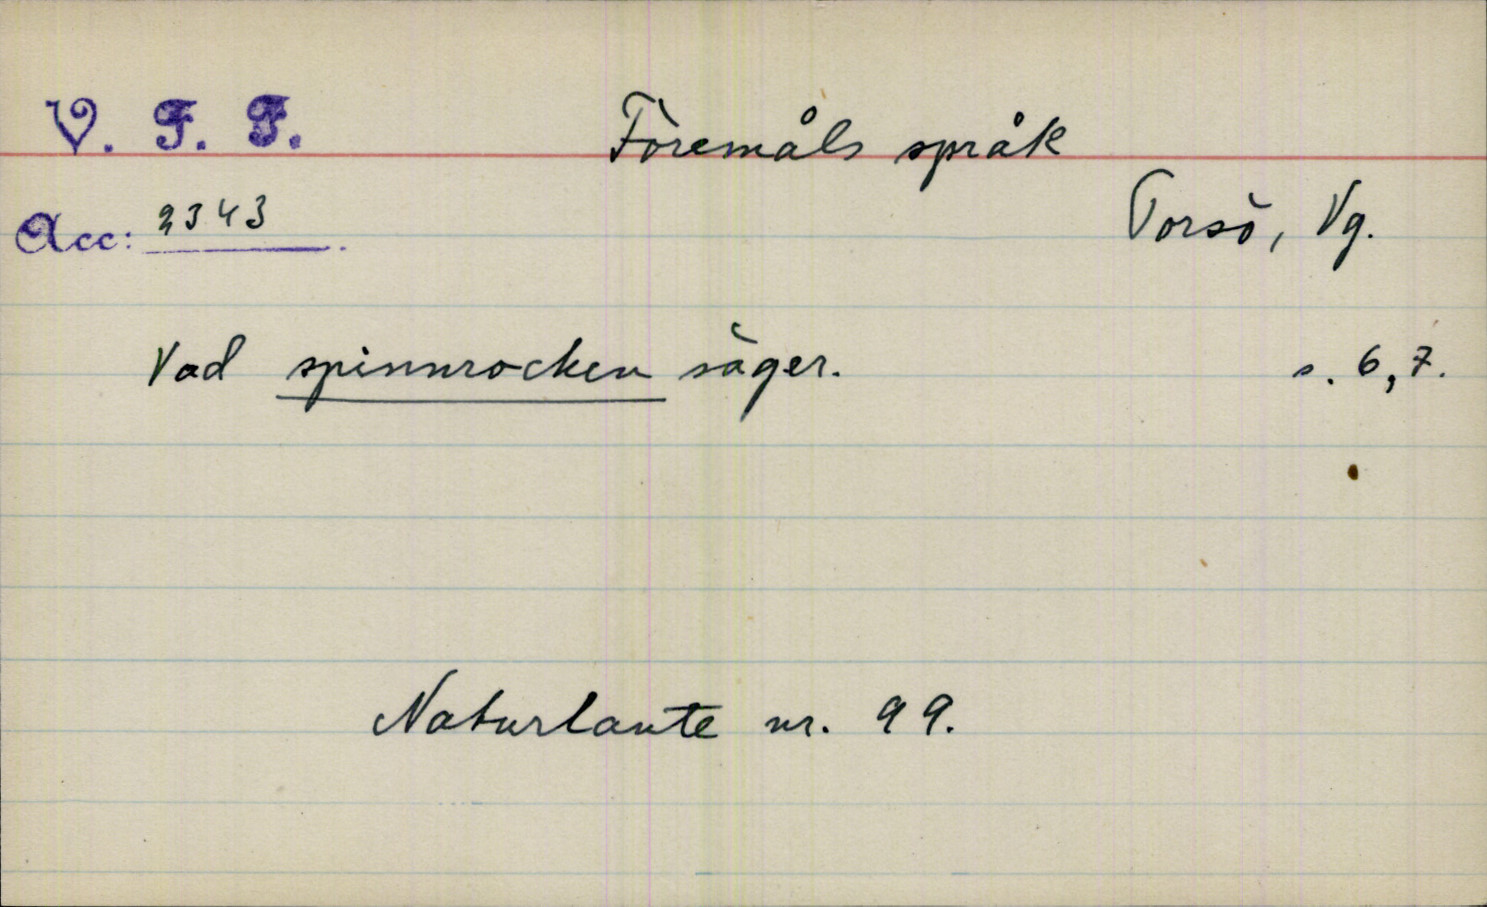 V. F. F.
Föremåls språk
Acc: 2343.
Torsö, Vg.
Vad spinnrocken säger. s. 6, 7.
Naturlaute nr. 99.